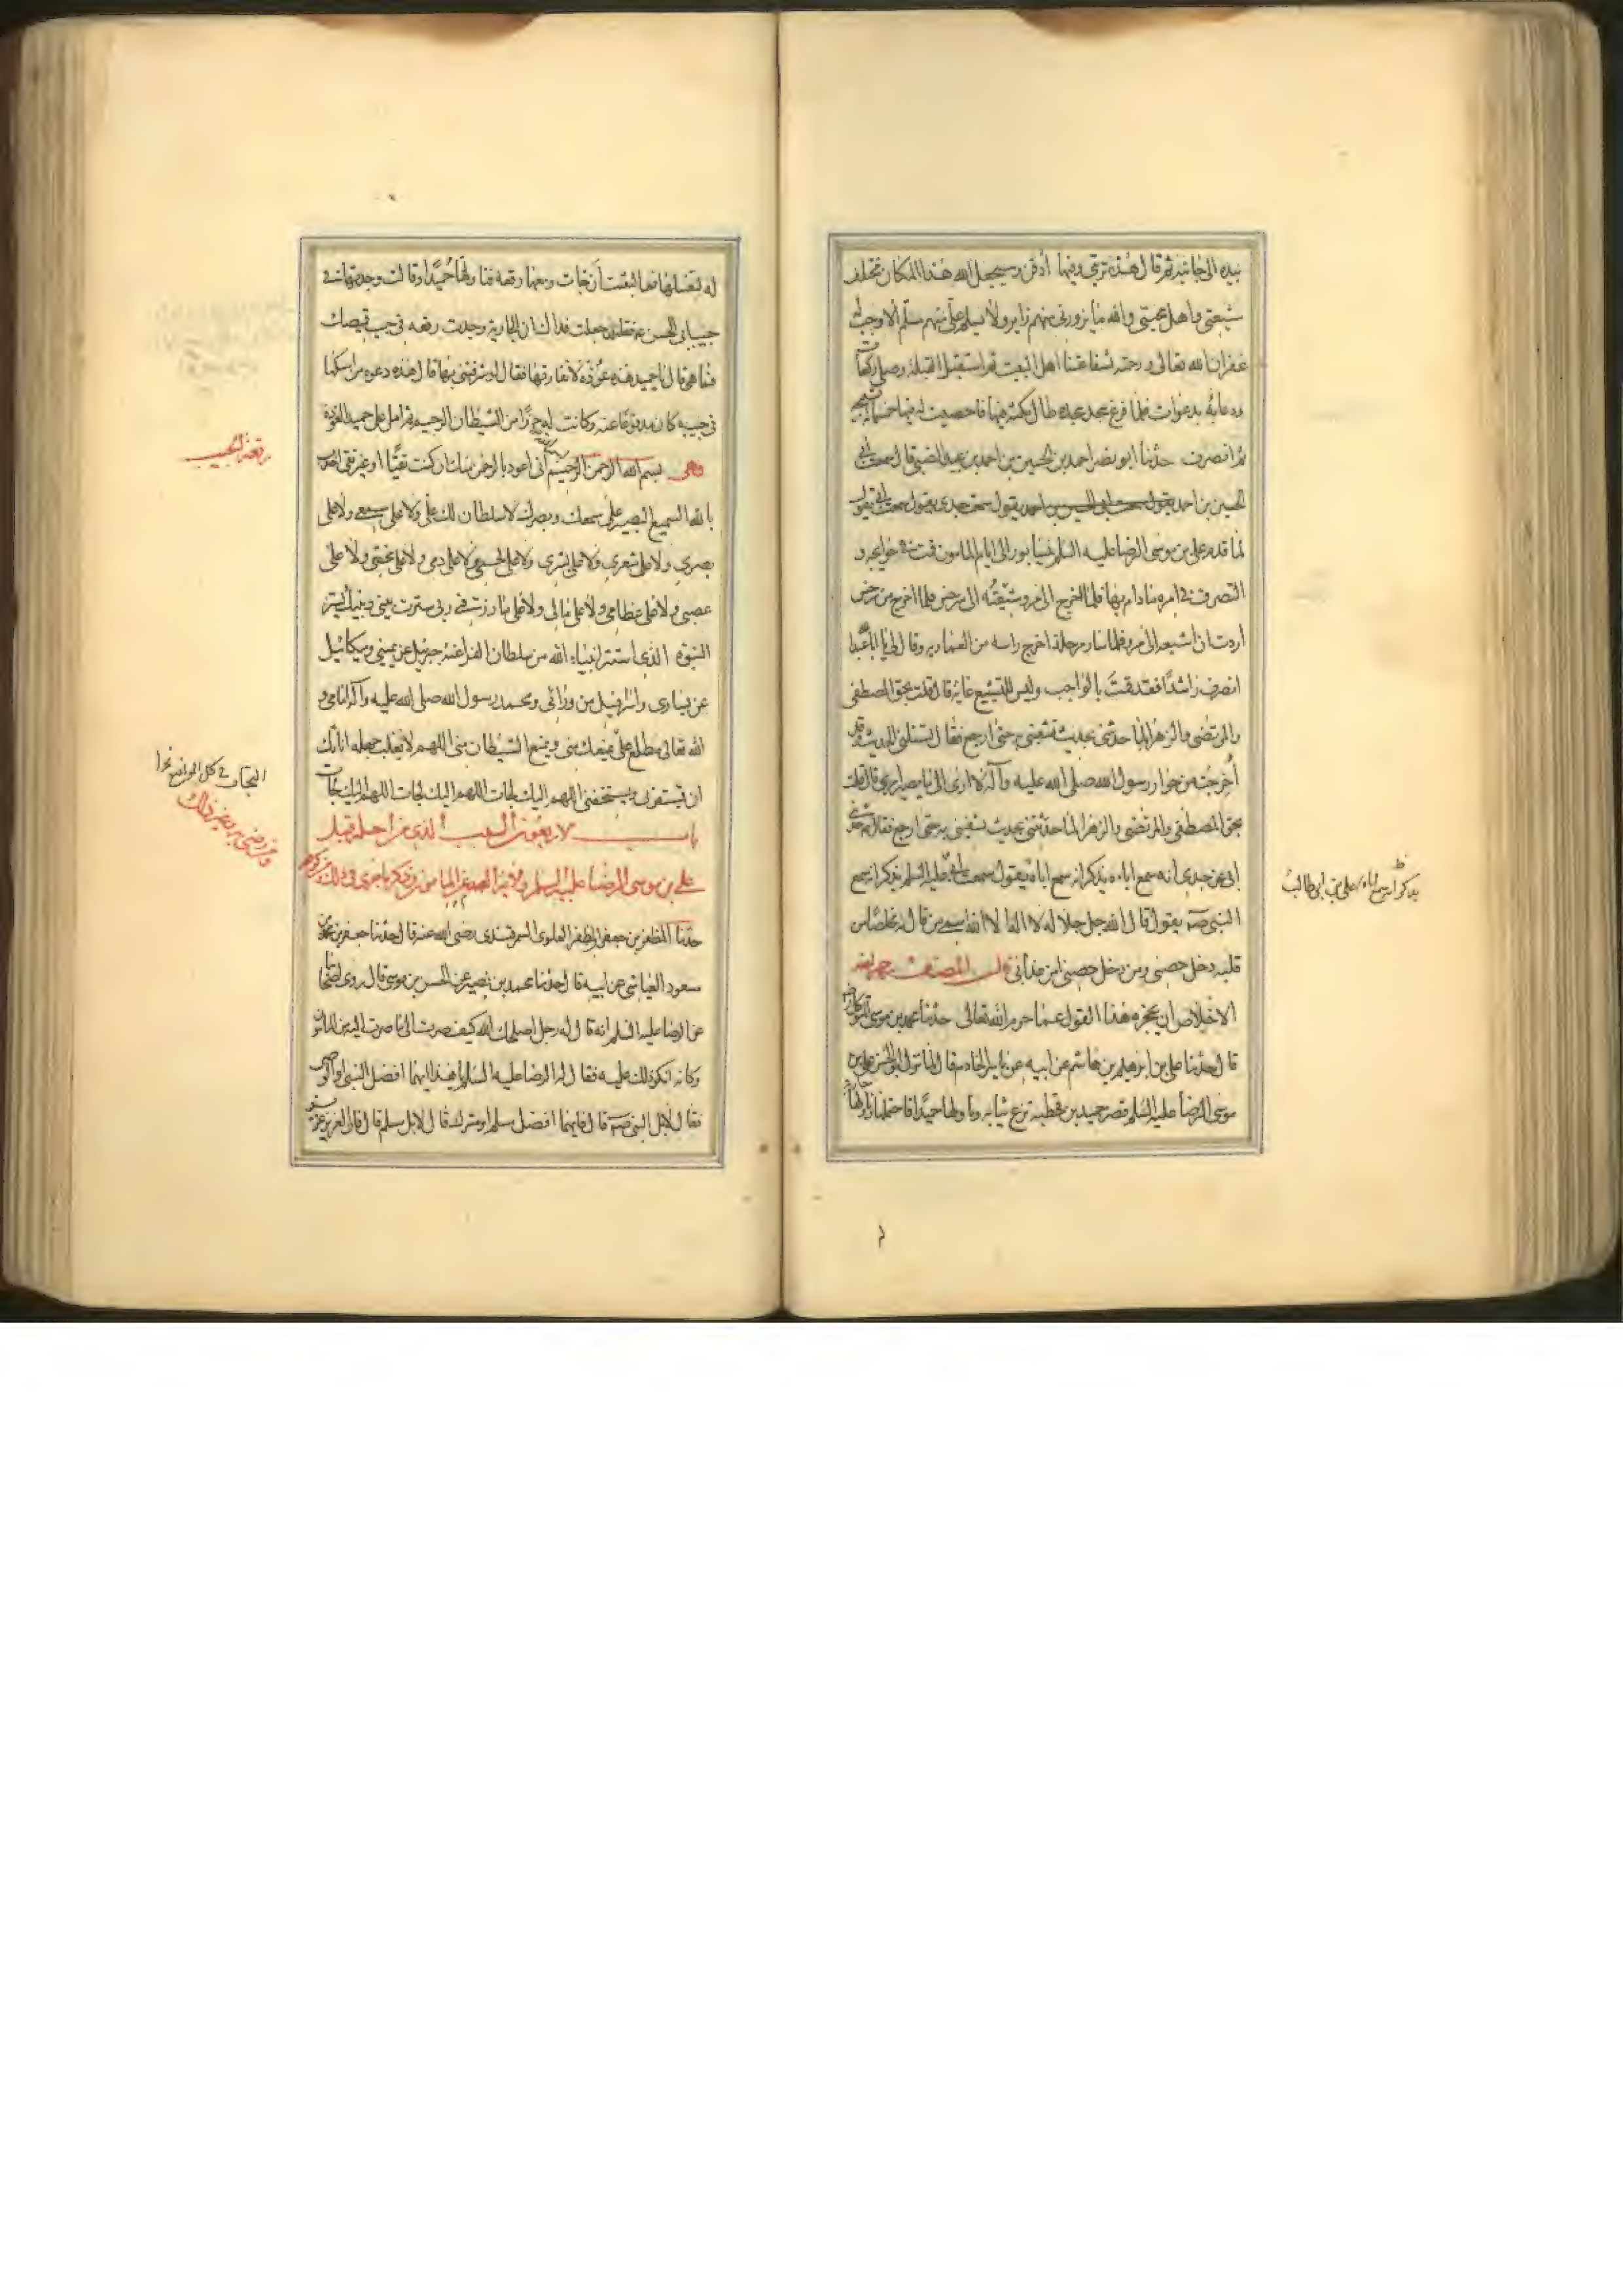 بيده الى جانبه ثم قال هذه تربتي وفيها ادفن وسيجعل الله هذا المكان مختلف
شيعتي واهل محبتي والله ما يزورني منهم زاير ولا يسلم علي منهم مسلم الا وجب له
غفران الله تعالى ورحمته بشفاعتنا اهل البيت ثم استقبل القبلة وصلى ركعات
ودعا بدعوات فلما فرغ سجد سجدة طال مكثه فيها فاحصيت له فيها خمسمائة تسبيحة
ثم انصرف حدثنا ابو نصر احمد بن الحسين بن احمد بن عبيد الضبي قال سمعت ابي
الحسين بن احمد يقول سمعت جدي يقول سمعت ابي يقول
لما قدم علي بن موسى الرضا عليه السلم نيسابور ايام المامون قمت في حوايجه و
التصرف في امره ما دام بها فلما اخرج الى مرو شيعته الى سرخس فلما اخرج من سرخس
اردت ان اشيعه الى مرو فلما سار مرحلة اخرج راسه من العمارية وقال لي يا ابا عبد الله
انصرف راشدا فقد قمت بالواجب وليس للتشييع غاية قال قلت بحق المصطفى
والمرتضى والزهرا لما حدثتني بحديث تشفيني به حتى ارجع فقال تسئلني الحديث وقد
اخرجت من جوار رسول الله صلى الله عليه وآله لا ادري الى ما يصير امري قال قلت
بحق المصطفى والمرتضى والزهرا لما حدثتني بحديث تشفيني به حتى ارجع فقال حدثني
ابي عن جدي انه سمع اباه يذكر انه سمع اباه يقول سمعت ابي علي عليه السلم يذكر انه سمع
النبي صه يقول قال الله جل جلاله لا اله الا الله اسمي من قاله مخلصا من
قلبه دخل حصني ومن دخل حصني امن عذابي قال المصنف رحمه الله
الاخلاص ان يحجزه هذا القول عما حرم الله تعالى حدثنا محمد بن موسى المتوكل رضه
قال حدثنا علي بن ابرهيم بن هاشم عن ابيه عن ياسر الخادم قال لما نزل ابو الحسن علي بن
موسى الرضا عليه السلم قصر حميد بن قحطبة نزع ثيابه وناولها حميدا فاحتملها وناولها جارية
يذكر انه سمع اباه علي بن ابي طالب
له لتغسلها فما لبثت ان جات ومعها رقعة فناولتها حميدا وقالت وجدتها في
جيب ابي الحسن ع فقلت جعلت فداك ان الجارية وجدت رقعة في جيب قميصك
فما هي قال يا حميد هذه عوذة لا نفارقها فقال لو شرفتني بها قال هذه دعوة من امسكها
في جيبه كان مدفوعا عنه وكانت له حرزا من الشيطان الرجيم ثم املى على حميد العوذة
وهي بسم الله الرحمن الرحيم اني اعوذ بالرحمن منك ان كنت تقيا او غير تقي اخذت
بالله السميع البصير على سمعك وبصرك لا سلطان لك علي ولا على سمعي ولا على
بصري ولا على شعري ولا على بشري ولا على لحمي ولا على دمي ولا على مخي ولا على
عصبي ولا على عظامي ولا على مالي ولا على ما رزقني ربي سترت بيني وبينك بستر
النبوة الذي استتر انبياء الله من سلطان الفراعنة جبرئيل عن يميني وميكائيل
عن يساري واسرافيل من ورائي ومحمد رسول الله صلى الله عليه وآله امامي و
الله تعالى مطلع علي يمنعك مني ويمنع الشيطان مني اللهم لا يغلب جهله اناتك
ان يستفزني ويستخفني اللهم اليك لجات اللهم اليك لجات اللهم اليك لجات
باب السبب الذي من اجله قبل
علي بن موسى الرضا عليه السلم ولاية العهد من المامون وذكر ما جرى في ذلك
حدثنا المظفر بن جعفر المظفر العلوي السمرقندي رضي الله عنه قال حدثنا جعفر بن محمد بن
مسعود العياشي عن ابيه قال حدثنا محمد بن نصير عن الحسن بن موسى قال روى اصحابنا
عن الرضا عليه السلم انه قال له رجل اصلحك الله كيف صرت الى ما صرت اليه من المامون
وكانه انكر ذلك عليه فقال له الرضا عليه السلم يا هذا ايهما افضل النبي او الوصي
فقال لا بل النبي صه قال فايهما افضل مسلم او مشرك قال لا بل مسلم قال فان العزيز عزيز
رقعة الجيب